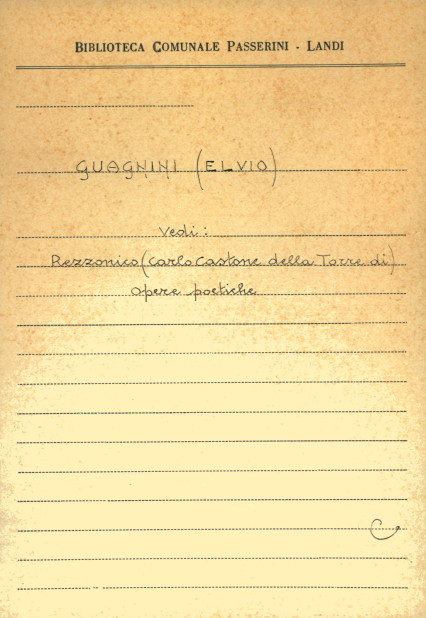 BIBLIOTECA COMUNALE PASSERINI - LANDI
GUAGNINI (ELVIO)
Vedi:
Rezzonico (Carlo Castone della Torre di)
Opere poetiche